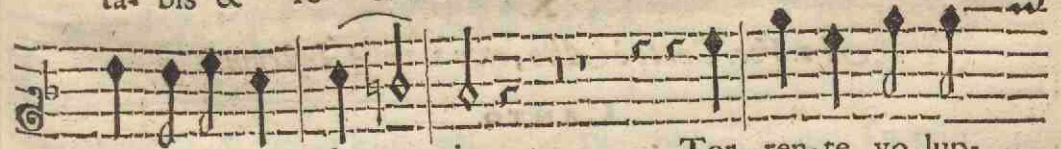 ta- bis &
Tor ren-te vo lup-